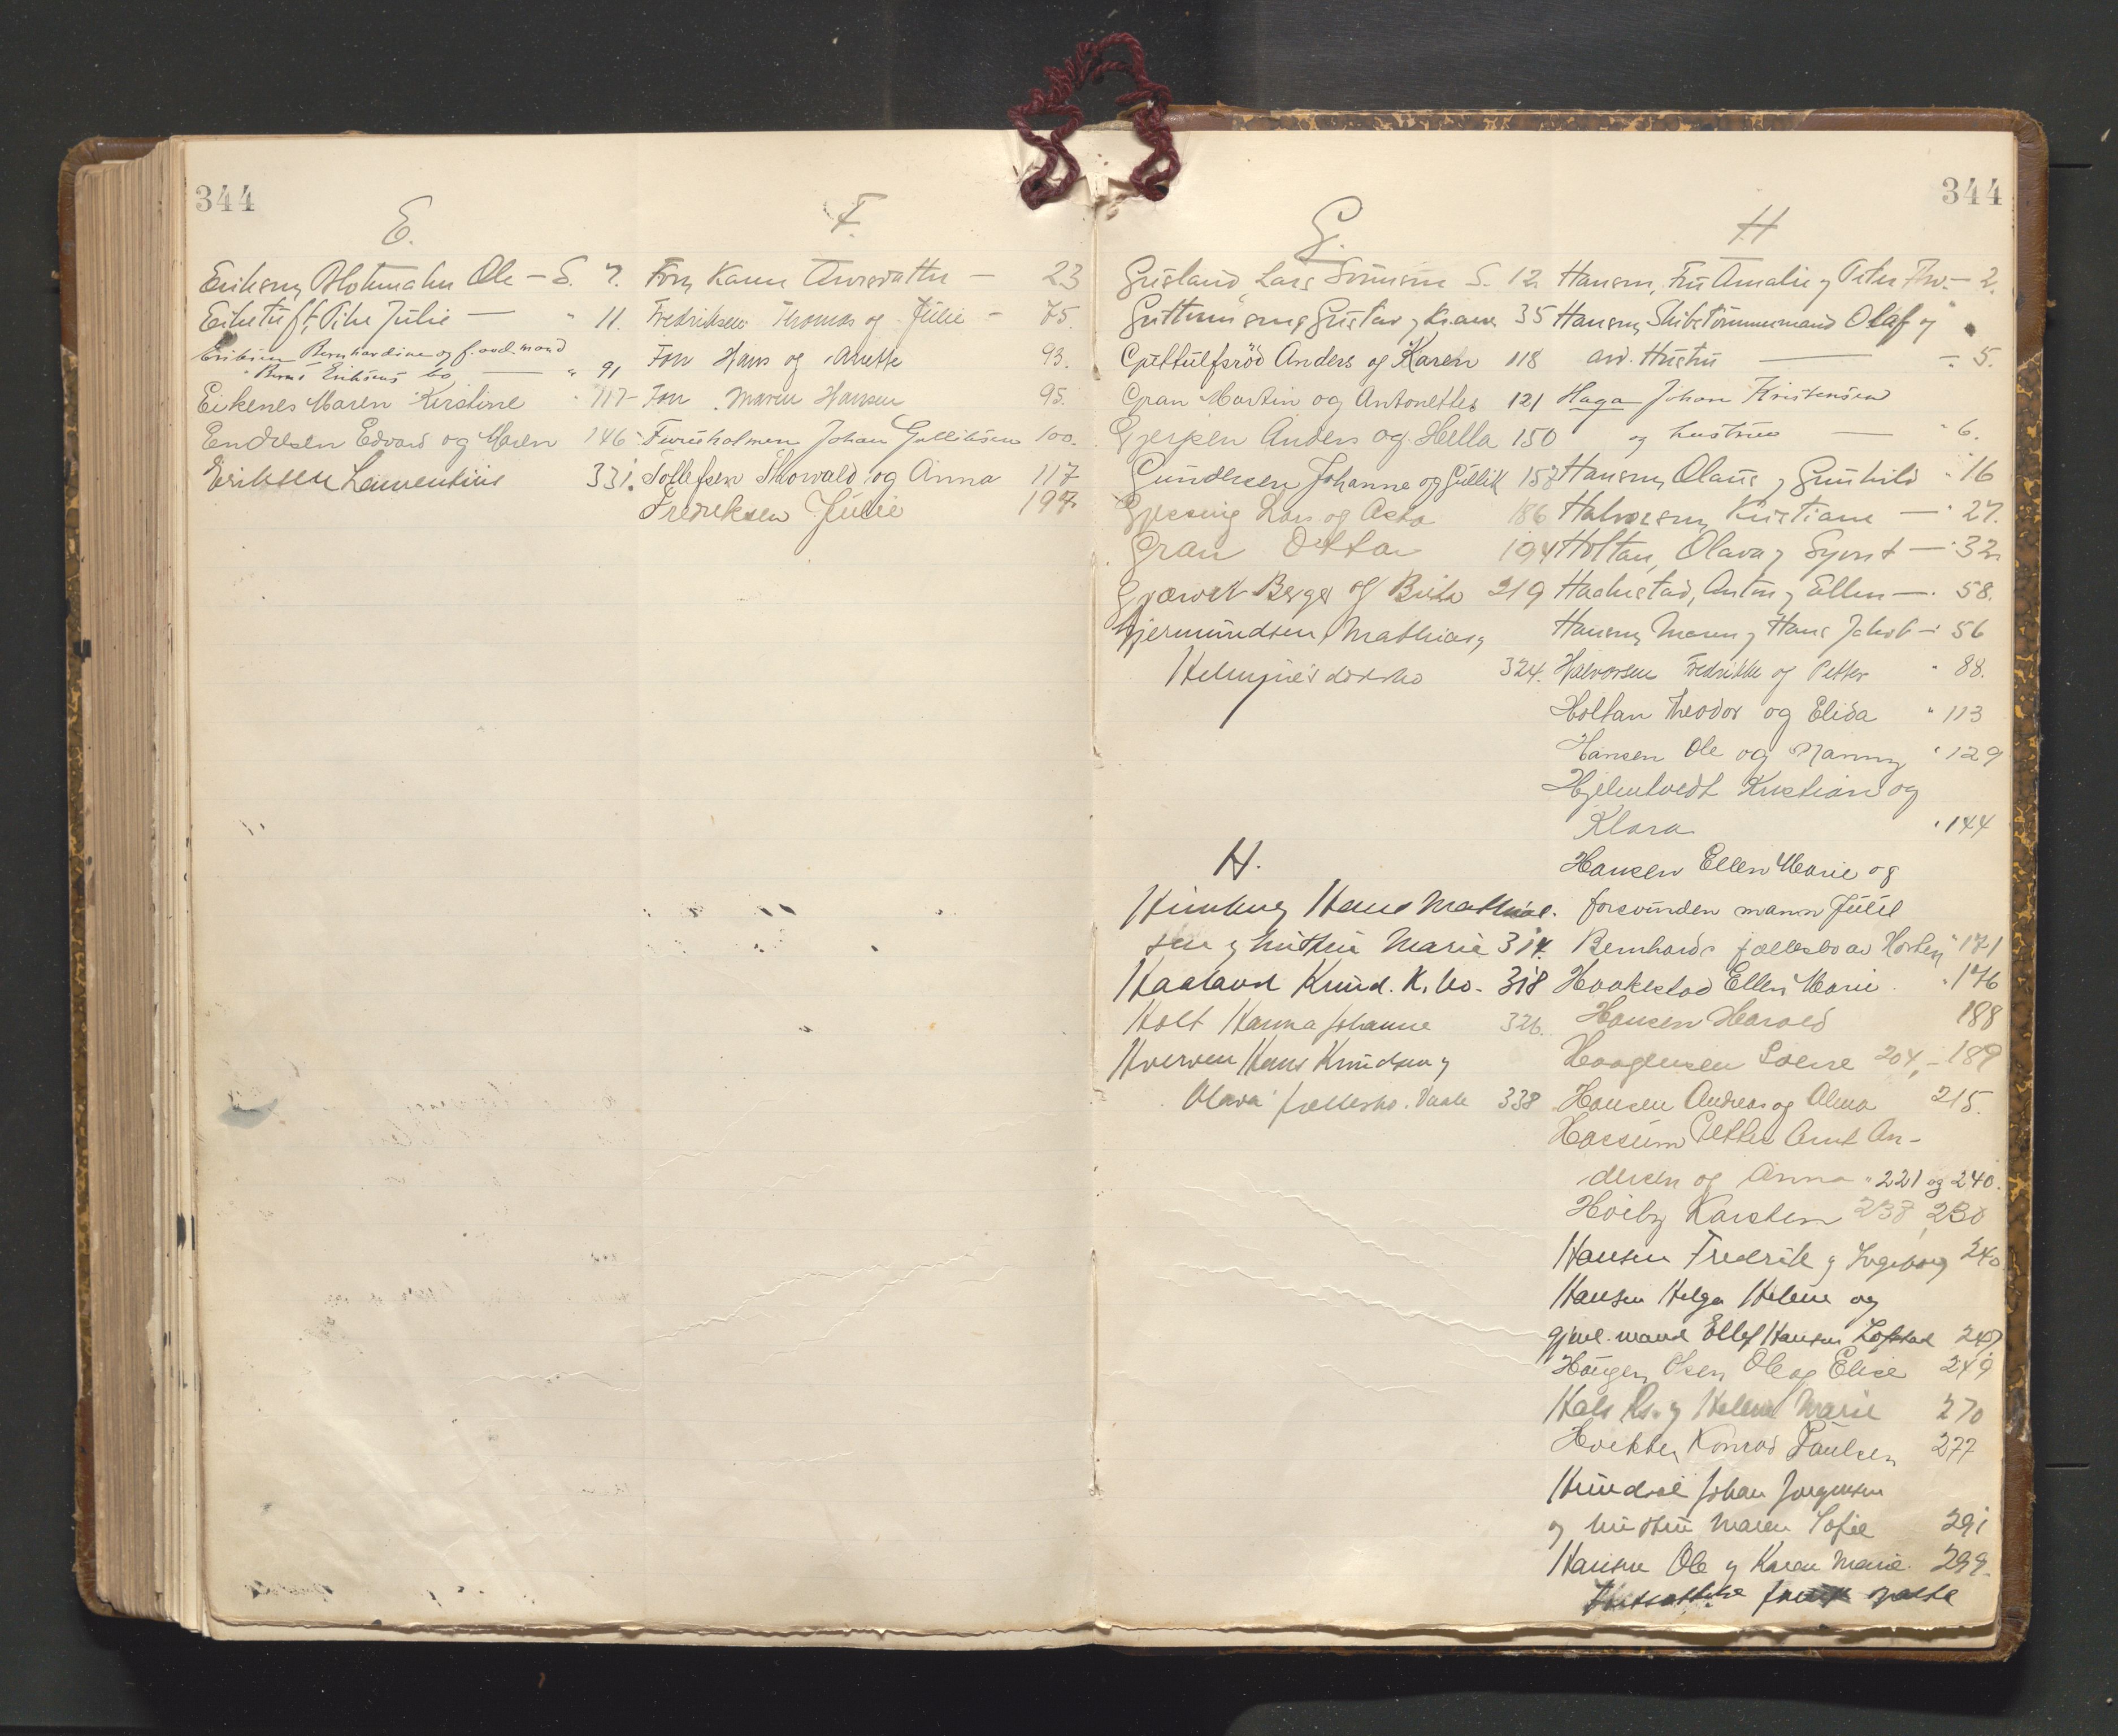 344
E.
Eriksen, Ole — S. 7.
Eiketuft, Pike Julie — " 11.
Eriksen Bernhardine og f. avd. mand
Eriksens bo — " 91
Eikenes Maren Kirstine " 117
Endresen Edvard og Maren 146
Eriksen Laurentius 331.
F.
Fon, Karen Andersdatter — 23
Fredriksen Thomas og Julie — 75.
Fon Hans og Anette 93.
Fon Maren Hansen 95.
Furuholmen Johan Gulliksen 100.
Tollefsen Thorvald og Anna 117
Fredriksen Julie 197.
344
G.
Lars S. 12.
Guttormsen, Gustav og Karen 35
Gjettulfsrød Anders og Karen 118
Gran Martin og Antonette 121
Gjerpen Anders og Hella 150
Gundersen Johanne og Gullik 157
Gjessing Lars og Asta 186
Gran Otto 194
Berger og 219
Gjermundsen, Mathias,
dødsbo 324.
H.
Hans Mathias-
sen og hustru Marie 314.
Haaland Knud. K. bo. 318
Holt Hanna Johanne 326.
Hverven Hans Knudsen og
Olava fællesbo. Vaale 338
H
Hansen, Fru Amalie og Peter — 2.
Hansen, Skibstømmermand Olaf og
avd. Hustru — " 5.
Haga Johan Kristensen
og hustru — " 6.
Hansen, Olaus og Gunhild " 16
Halvorsen, Kristiane — " 27.
Holtan, Olava og Syvert — " 32.
Haakestad, Anton og Ellen — " 58.
Hansen, Maren og Hans Jakob — " 56
Halvorsen Fredrikke og Petter " 88.
Holtan Theodor og Elida " 113
Hansen Ole og Nanny " 129
Hjelmtvedt Kristian og
Klara " 144
Hansen Ellen Marie og
forsvunden mann Juul
Bernhards fællesbo av Horten " 171
Haakestad Ellen Marie " 176
Hansen Harald 188
Haagensen 204, - 189
Hansen Andreas og Alma 215.
Hassum Petter Arnt An-
dersen og Anna " 221 og 240.
Høiby Karsten 238, 230
Hansen Fredrik og Ingeborg 240
Hansen Helga Helene og
gjenl. mand Ellef Hansen 247
Haugen, Olsen, Ole og Elise 249
Hals og Helene Marie 270
Konrad Paulsen 277
Johan Jørgensen
og hustru Maren Sofie 291
Hansen Ole og Karen Marie 299.